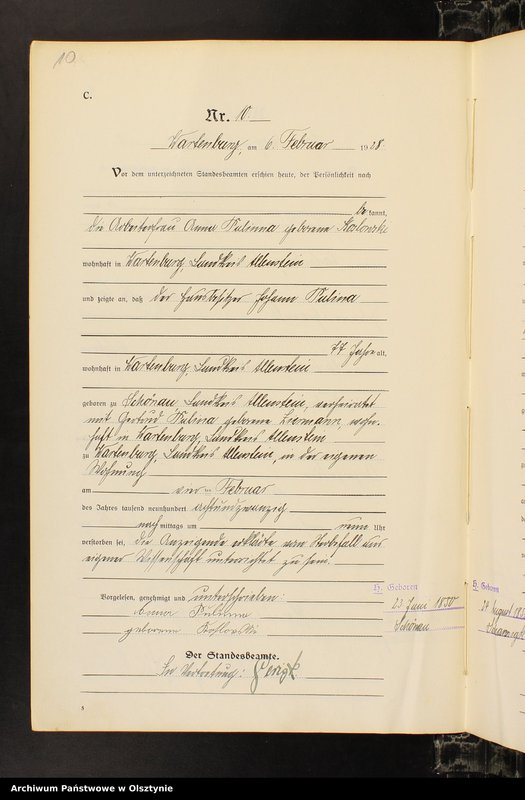 10
C.
Nr. 10.
Wartenburg, am 6. Februar 1928.
Vor dem unterzeichneten Standesbeamten erschien heute, der Persönlichkeit nach
be kannt,
die Arbeiterfrau Anna Pulinna geborene
wohnhaft in Wartenburg, Landkreis Allenstein
und zeigte an, daß der Hausbesitzer Johann Pulina
77 Jahre alt,
wohnhaft in Wartenburg, Landkreis Allenstein
geboren zu Schönau, Landkreis Allenstein, verheiratet
mit Gertrud Pulina geborene wohn-
haft in Wartenburg, Landkreis Allenstein
zu Wartenburg, Landkreis Allenstein, in der eigenen
Wohnung
am vier ten Februar
des Jahres tausend neunhundert achtundzwanzig
nach mittags um neun Uhr
verstorben sei. Die Anzeigende erklärte vom Sterbefall aus
eigener Wissenschaft unterrichtet zu sein.
Vorgelesen, genehmigt und unterschrieben:
Anna Pulinna
geborene
H. Geboren
23 Juni 1850
Schönau
H. Geboren
Der Standesbeamte.
In Vertretung:
5
Archiwum Państwowe w Olsztynie